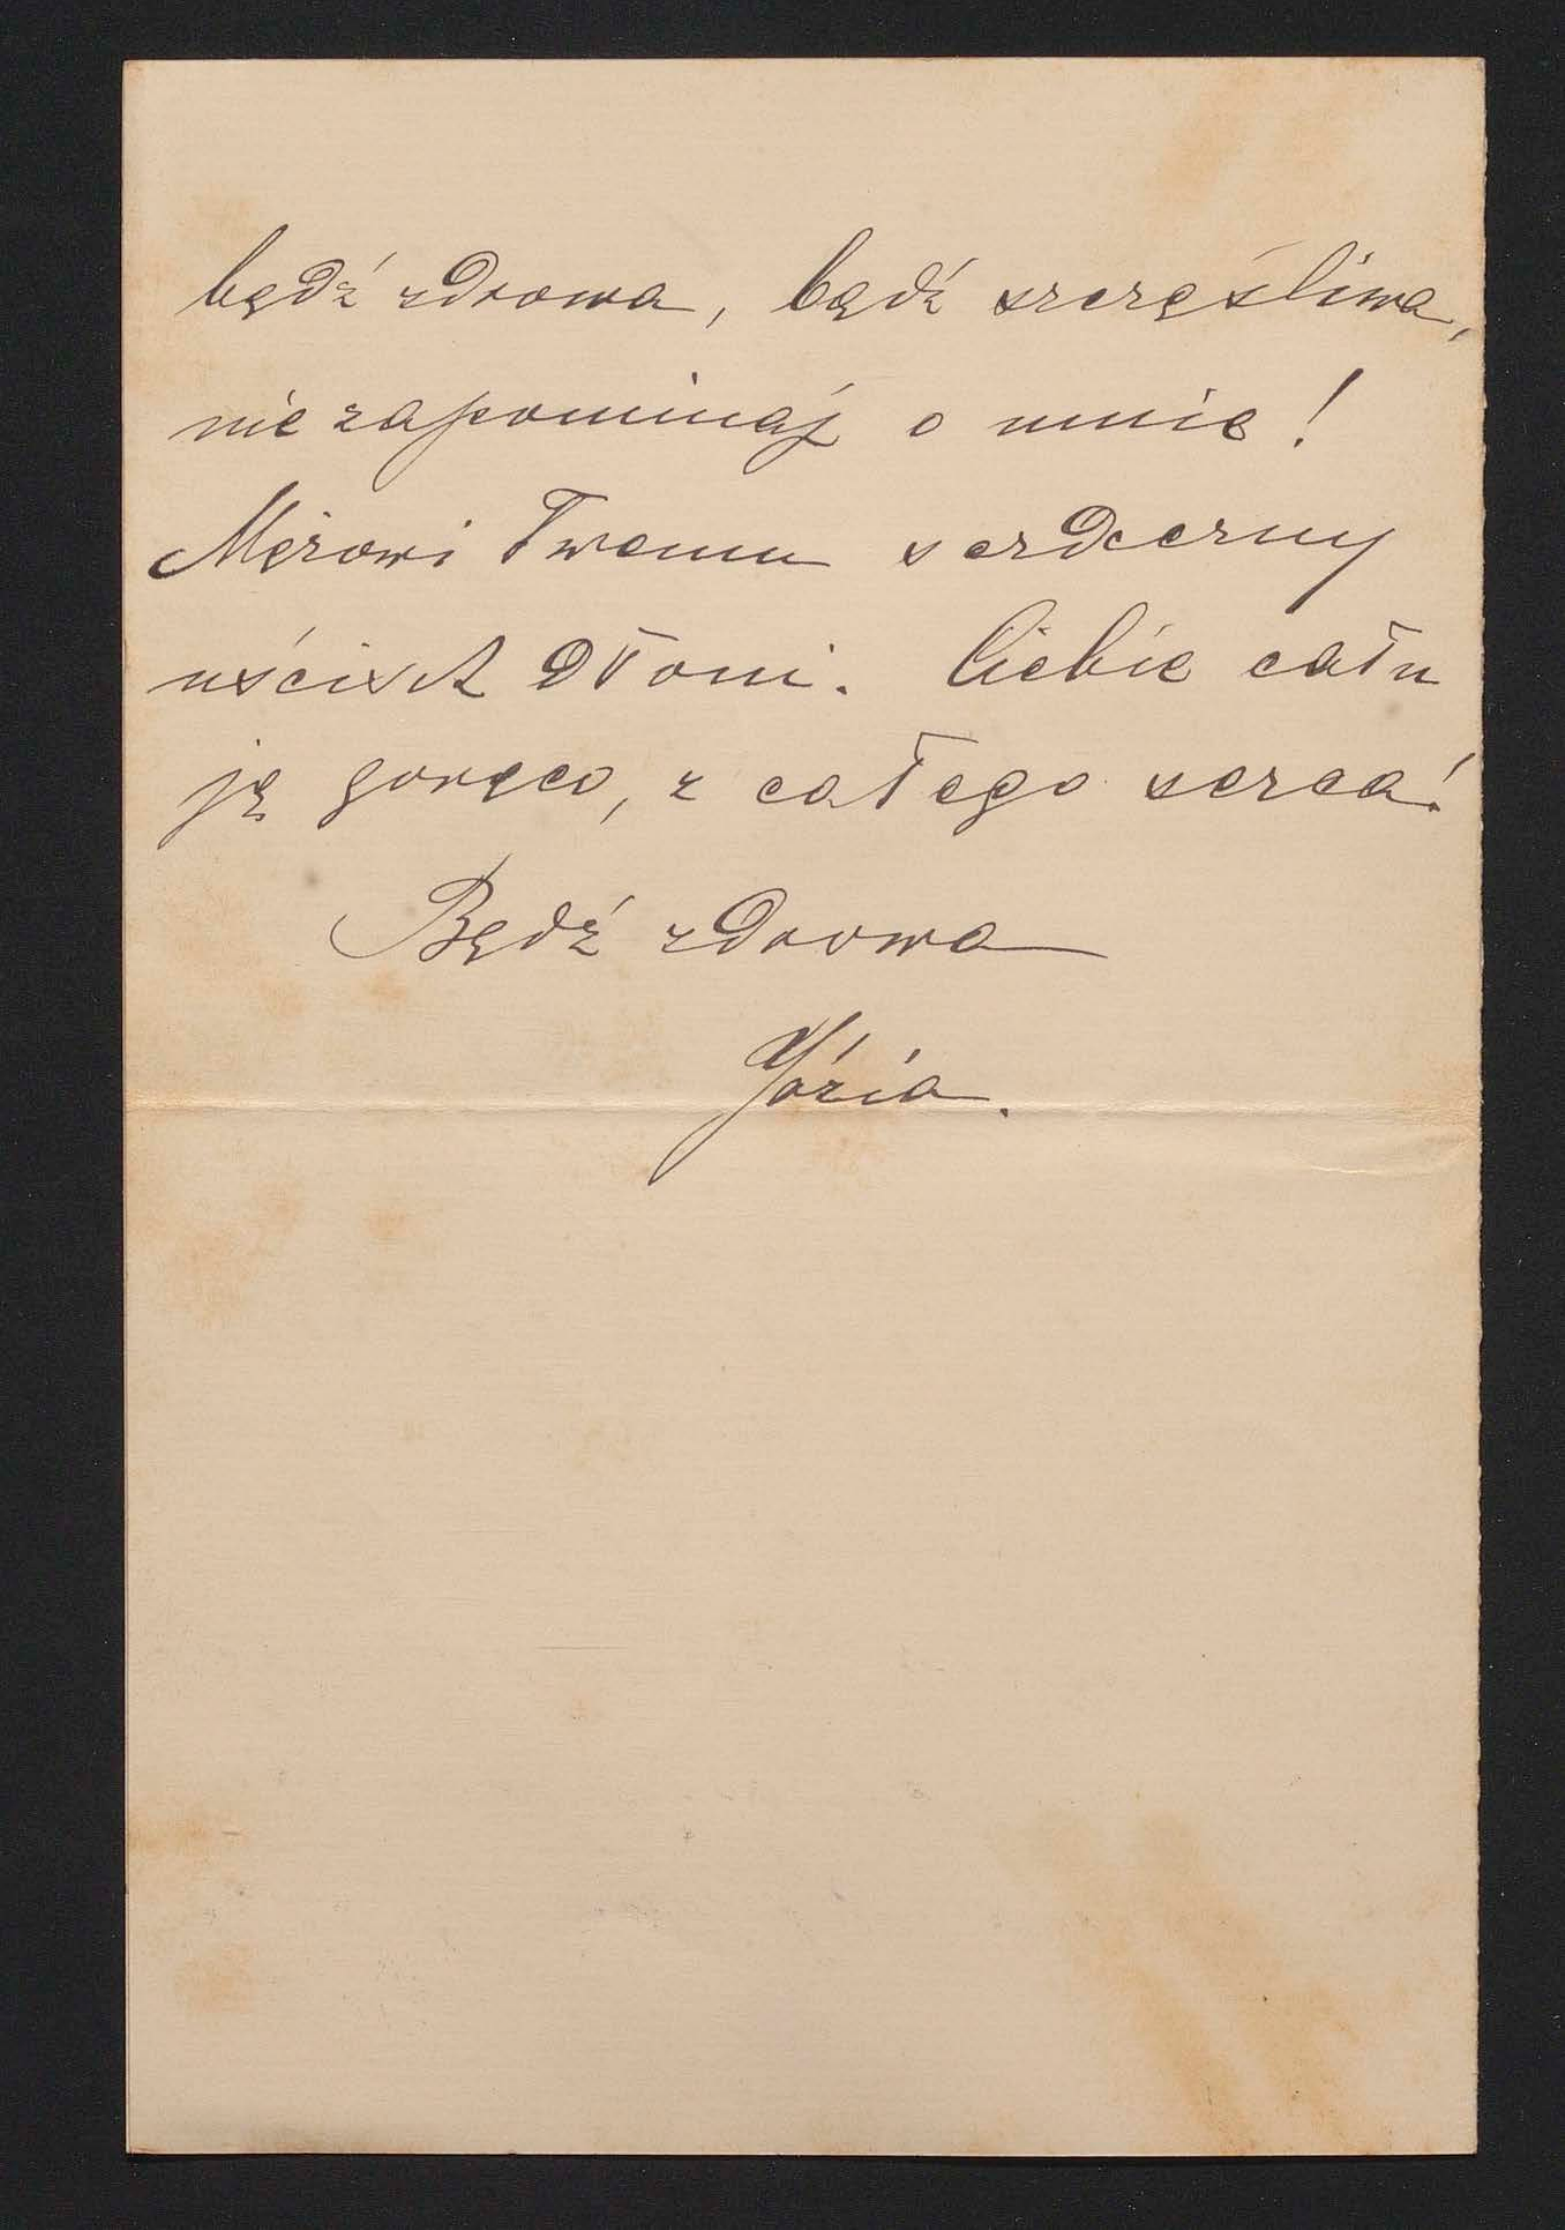 bądź zdrowa, bądź szczęśliwa,
nie zapominaj o mnie!
Mężowi Twemu serdeczny
uścisk dłoni. Ciebie cału
ję gorąco, z całego serca!
Bądź zdrowa
Józia.